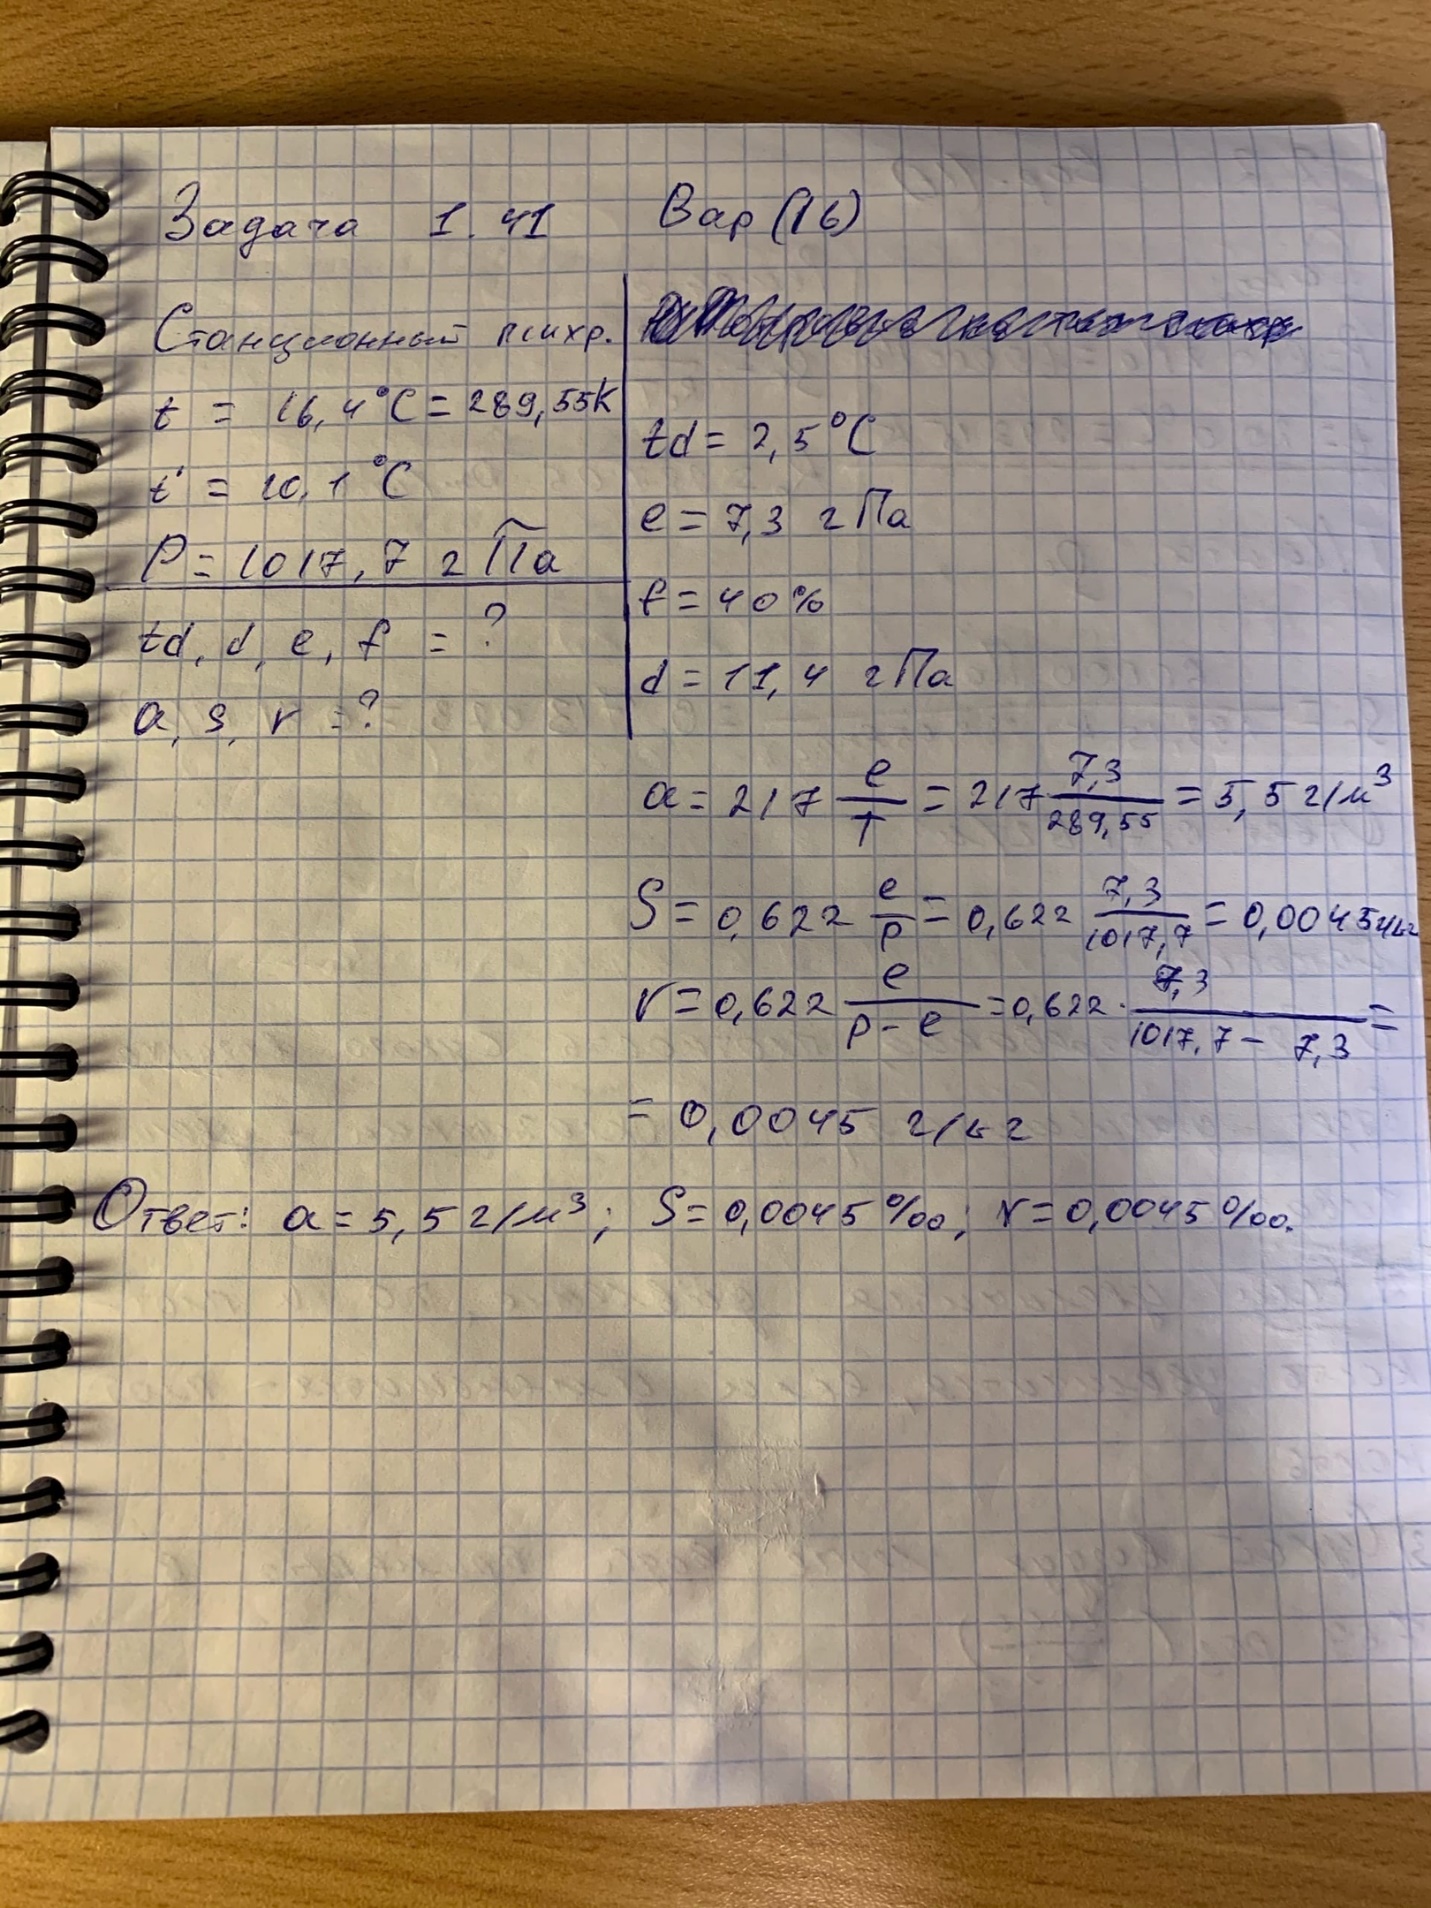 Задача 1.41 Вар (16)
Станционный психр.
t = 16,4°C = 289,55K
t' = 10,1 °C
P = 1017,7 гПа
td, d, e, f = ?
a, s, r = ?
td = 2,5 °C
e = 7,3 гПа
f = 40%
d = 11,4 гПа
a = 217 e/T = 217 7,3/289,55 = 5,5 г/м³
S = 0,622 e/p = 0,622 7,3/1017,7 = 0,0045 г/кг
r = 0,622 e/p-e = 0,622 · 7,3/1017,7 - 7,3 =
= 0,0045 г/кг
Ответ: a = 5,5 г/м³; S = 0,0045 ‰; r = 0,0045 ‰.